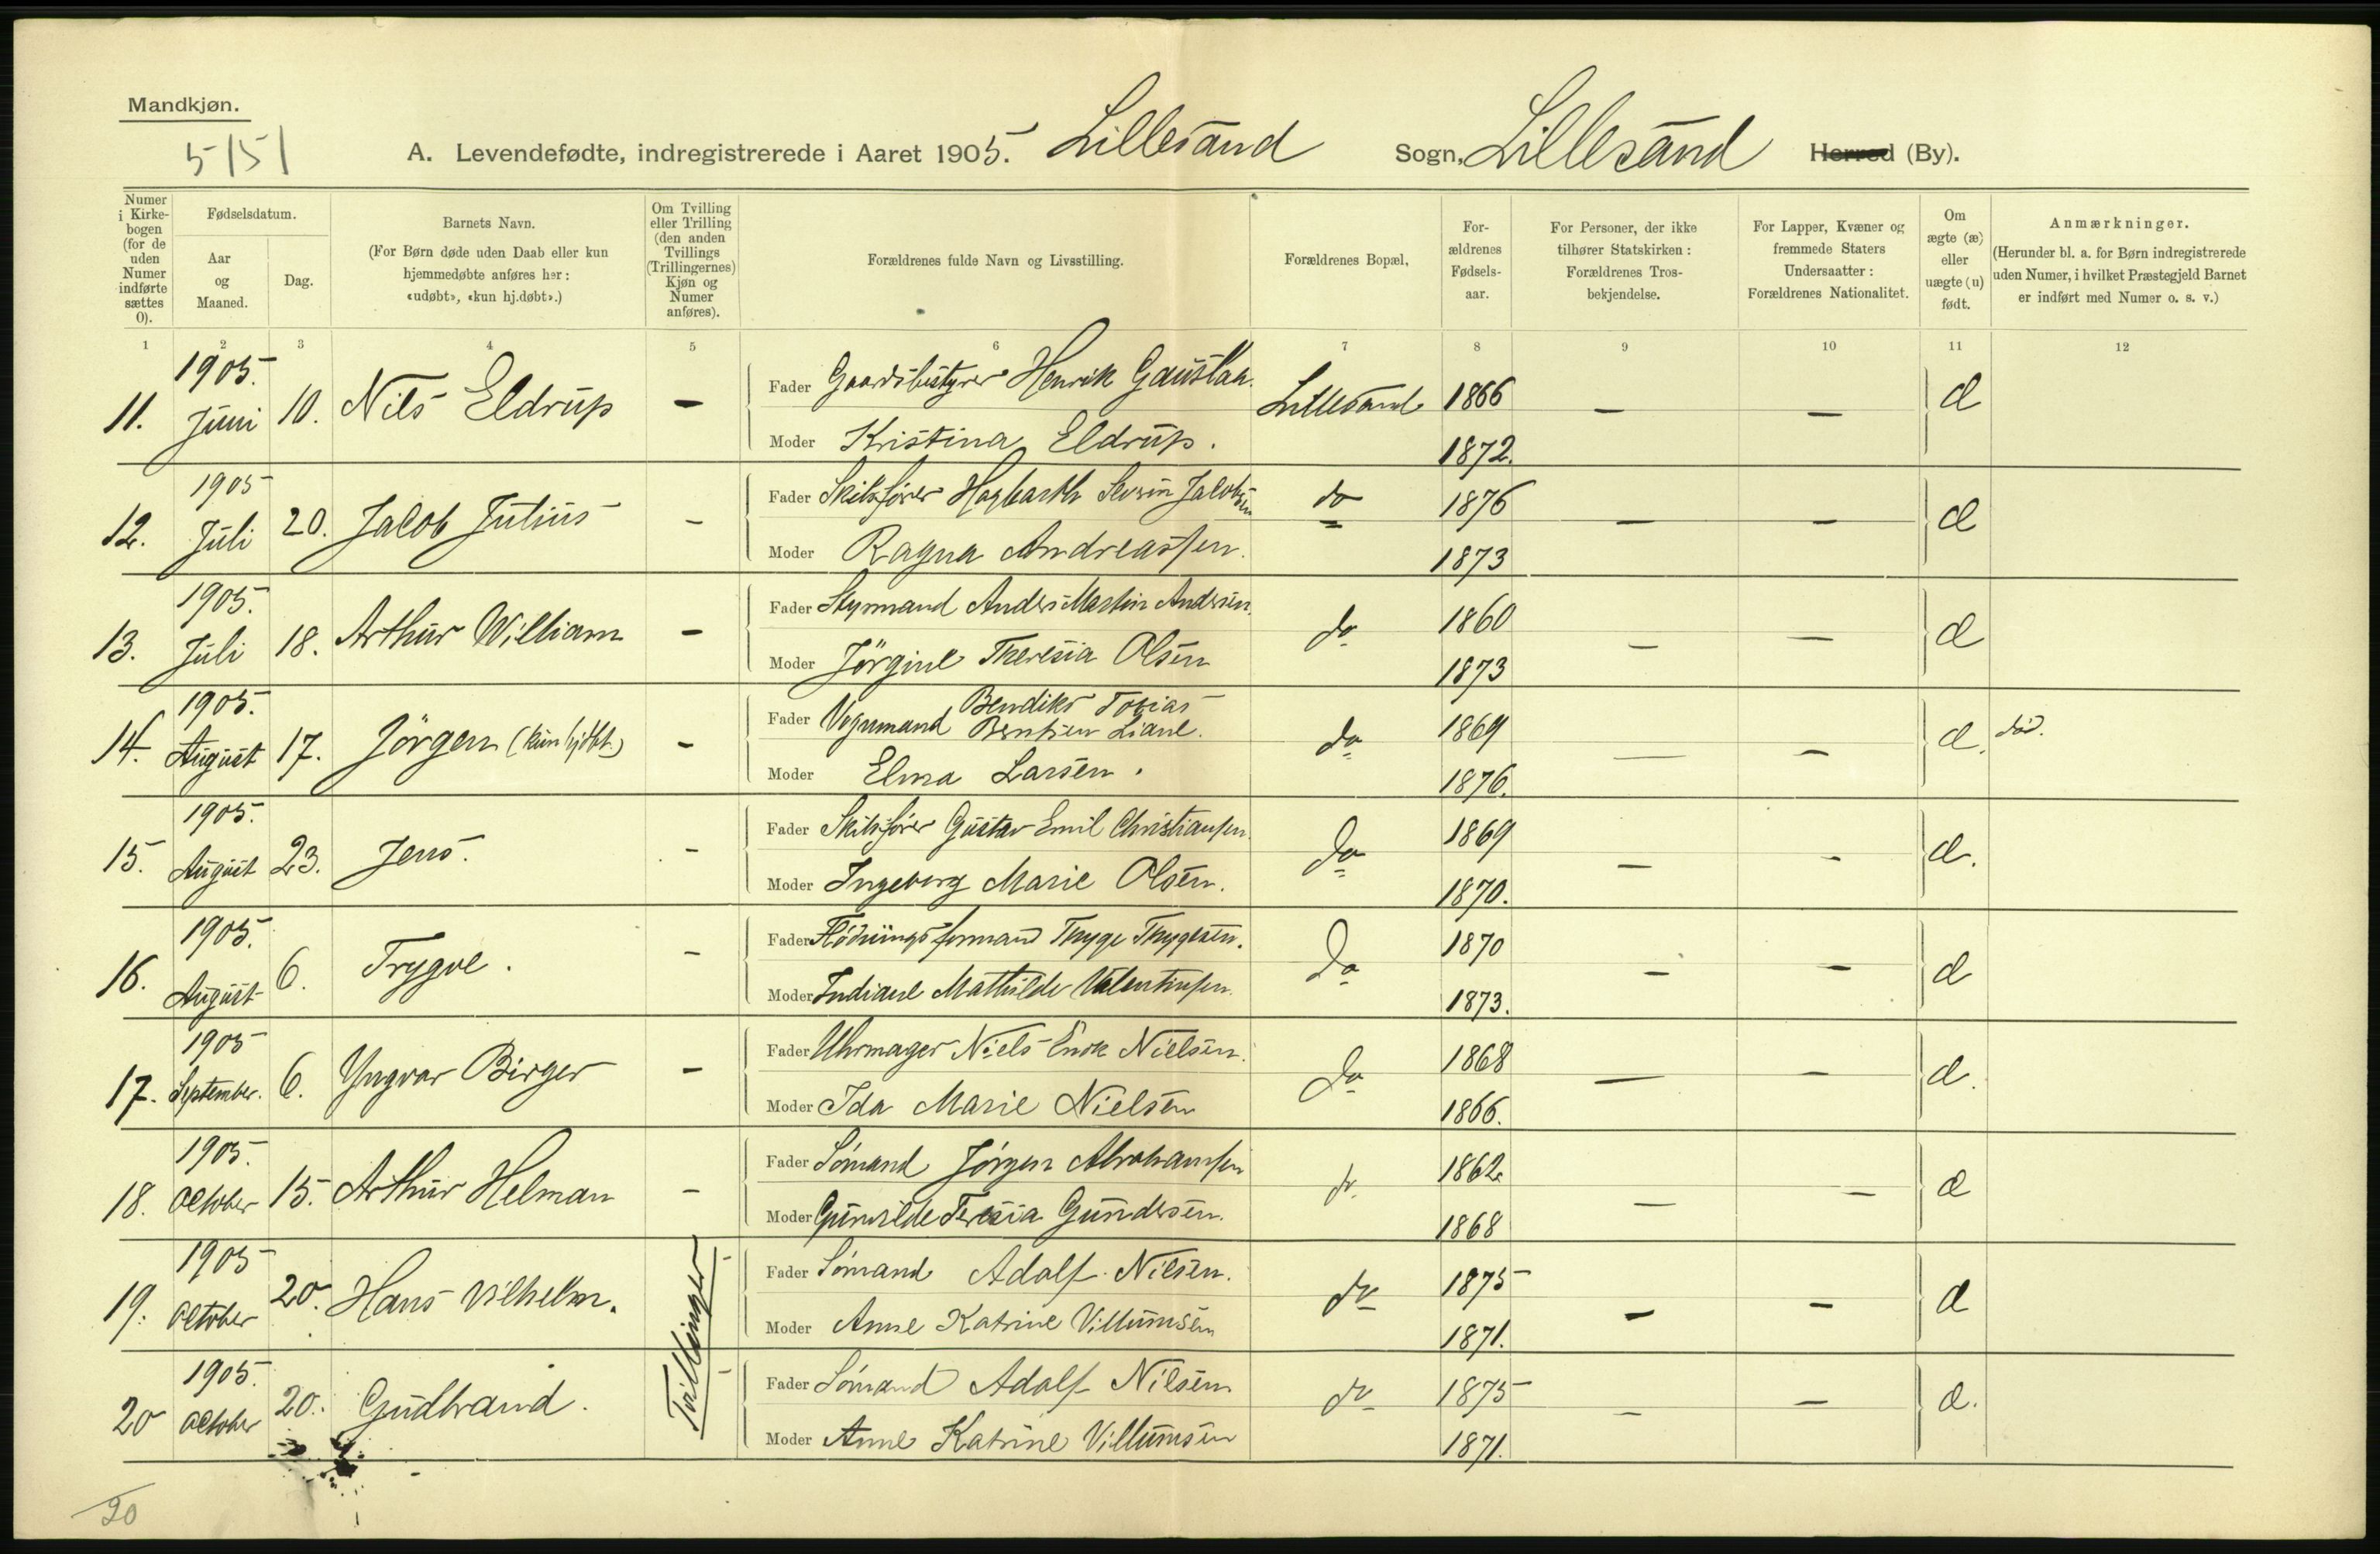 Mandkjøn.
5/5 |
A. Levendefødte, indregistrerede i Aaret 1905. Lillesand Sogn, Lillesand Herred (By).
Numer i Kirkebogen (for de uden Numer indførte sættes 0).
Fødselsdatum.
Aar og Maaned.
Dag.
Barnets Navn.
(For Børn døde uden Daab eller kun hjemmedøbte anføres her: «udøbt», «kun hj.døbt».)
Om Tvilling eller Trilling (den anden Tvillings (Trillingernes) Kjøn og Numer anføres).
Forældrenes fulde Navn og Livsstilling.
Forældrenes Bopæl,
Forældrenes Fødselsaar.
For Personer, der ikke tilhører Statskirken: Forældrenes Trosbekjendelse.
For Lapper, Kvæner og fremmede Staters Undersaatter: Forældrenes Nationalitet.
Om ægte (æ) eller uægte (u) født.
Anmærkninger.
(Herunder bl. a. for Børn indregistrerede uden Numer, i hvilket Præstegjeld Barnet er indført med Numer o. s. v.)
1 2 3 4 5 6 7 8 9 10 11 12
11. 1905. Juni 10. Nils Eldrup - Fader Gaardsbestyrer Henrik Lillesand 1866 - - æ
Moder Kristina Eldrup. 1872.
12. 1905 Juli 20. Jacob Julius - Fader Skibsfører Hagbarth Severin Jacobsen do 1876 - - æ
Moder Ragna Andreassen. 1873
13. 1905. Juli 18. Arthur William - Fader Styrmand Anders Martin Andersen. do 1860 - - æ
Moder Jörgine Theresia Olsen 1873
14. 1905. August 17. Jörgen (kun hjdbt.) - Fader Vognmand Bendiks Tobias Berntsen Liane. do 1869 - - æ. død.
Moder Elma Larsen. 1876.
15. 1905. August 23. Jens. - Fader Skibsfører Gustav Emil Christiansen. do 1869 - - æ.
Moder Ingeborg Marie Olsen. 1870.
16. 1905. August 6. Trygve. - Fader Flödningsformand Thyge Thygesen. do 1870 - - æ
Moder Indiane Mathilde Valentinsen. 1873.
17. 1905 September. 6. Yngvar Birger - Fader Uhrmager Niels Nielsen. do 1868 - - æ.
Moder Ida Marie Nielsen 1866.
18. 1905. October 15. Arthur Helman - Fader Sømand Jørgen Abrahamsen do. 1862 - - æ
Moder Gunvilde Teresia Gundersen. 1868
19. 1905 October 20. Hans Vilhelm. Tvillinger - Fader Sømand Adolf Nilsen. do 1875 - - æ
Moder Anne Katrine Villumsen 1871.
20 1905. October 20. Gudbrand. - Fader Sømand Adolf Nilsen do 1875 - - æ.
Moder Anne Katrine Villumsen 1871.
20